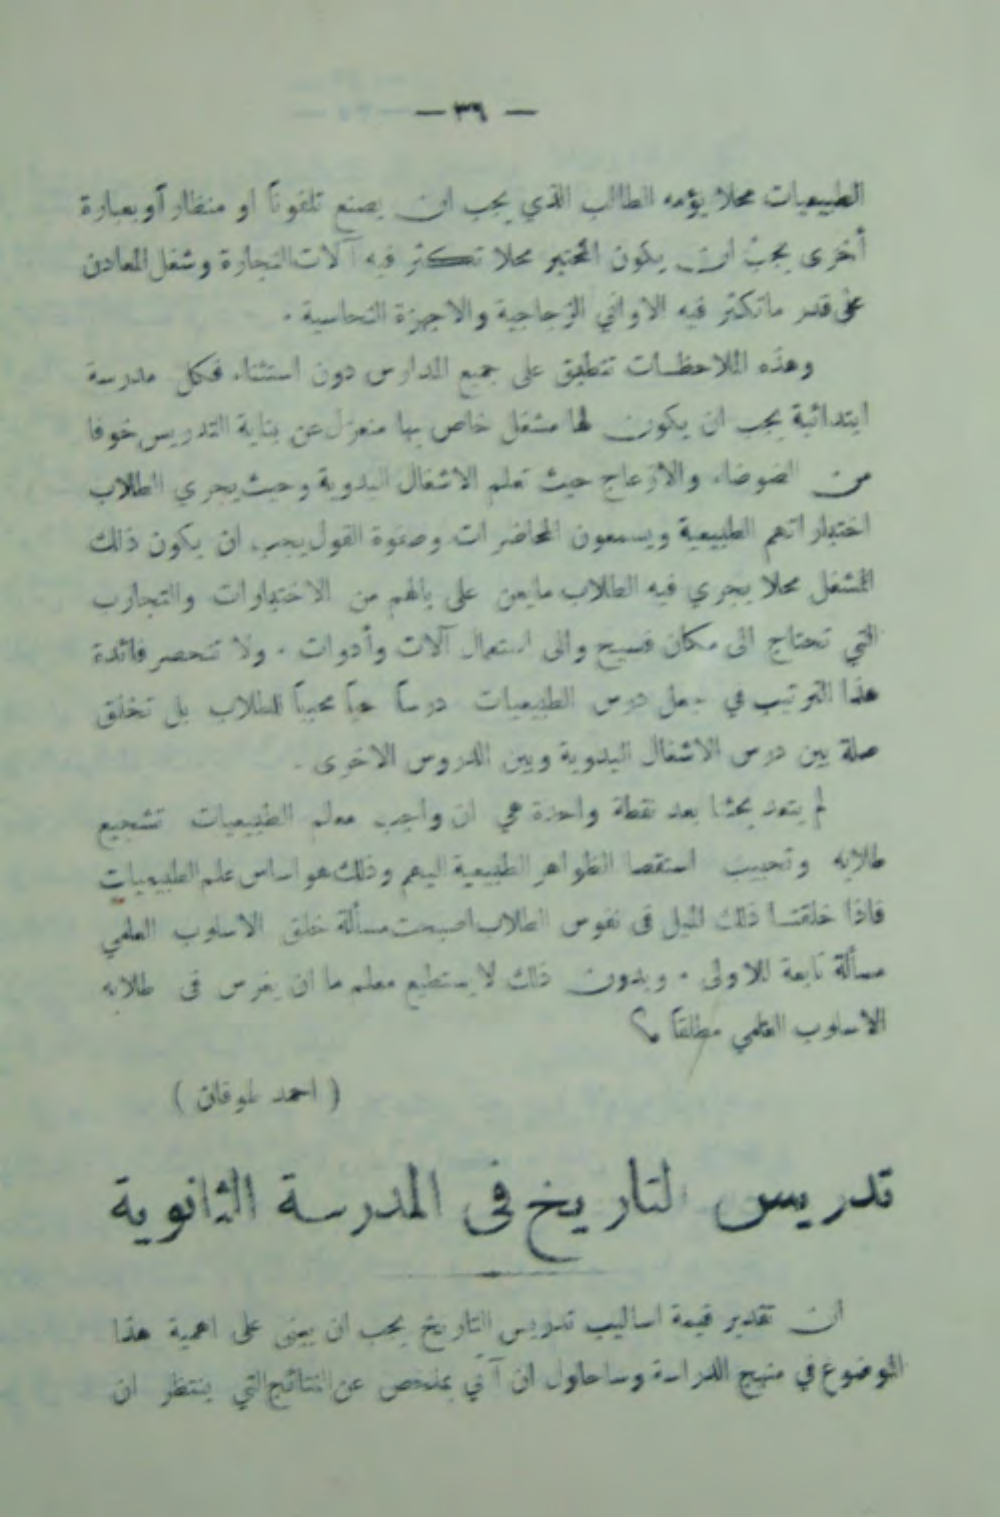 — ٣٦ —
الطبيعيات محلا يؤمه الطالب الذي يجب ان يصنع تلفوناً او منظاراً وبعبارة
أخرى يجب ان يكون المختبر محلا تكثر فيه آلات النجارة وشغل المعادن
على قدر ماتكثر فيه الاواني الزجاجية والاجهزة النحاسية .
وهذه الملاحظات تنطبق على جميع المدارس دون استثناء فكل مدرسة
ابتدائية يجب ان يكون لها مشغل خاص بها منعزل عن بناية التدريس خوفا
من الضوضاء والازعاج حيث تعلم الاشغال اليدوية وحيث يجري الطلاب
اختباراتهم الطبيعية ويسمعون المحاضرات وصفوة القول يجب ان يكون ذلك
المشغل محلا يجري فيه الطلاب مايعن على بالهم من الاختبارات والتجارب
التي تحتاج الى مكان فسيح والى استعمال آلات وأدوات . ولا تنحصر فائدة
هذا الترتيب في جعل درس الطبيعيات درساً حياً محبباً للطلاب بل تخلق
صلة بين درس الاشغال اليدوية وبين الدروس الاخرى .
لم يتعد بحثنا بعد نقطة واحدة هي ان واجب معلم الطبيعيات تشجيع
طلابه وتحبيب استقصا الظواهر الطبيعية اليهم وذلك هو اساس علم الطبيعيات
فاذا خلقنا ذلك الميل في نفوس الطلاب اصبحت مسألة خلق الاسلوب العلمي
مسألة تابعة للاولى . وبدون ذلك لا يستطيع معلم ما ان يغرس في طلابه
الاسلوب العلمي مطلقاً
( احمد طوقان )
تدريس التاريخ في المدرسة الثانوية
ان تقدير قيمة اساليب تدريس التاريخ يجب ان يبنى على اهمية هذا
الموضوع في منهج الدراسة وساحاول ان آتي بملخص عن النتائج التي ينتظر ان